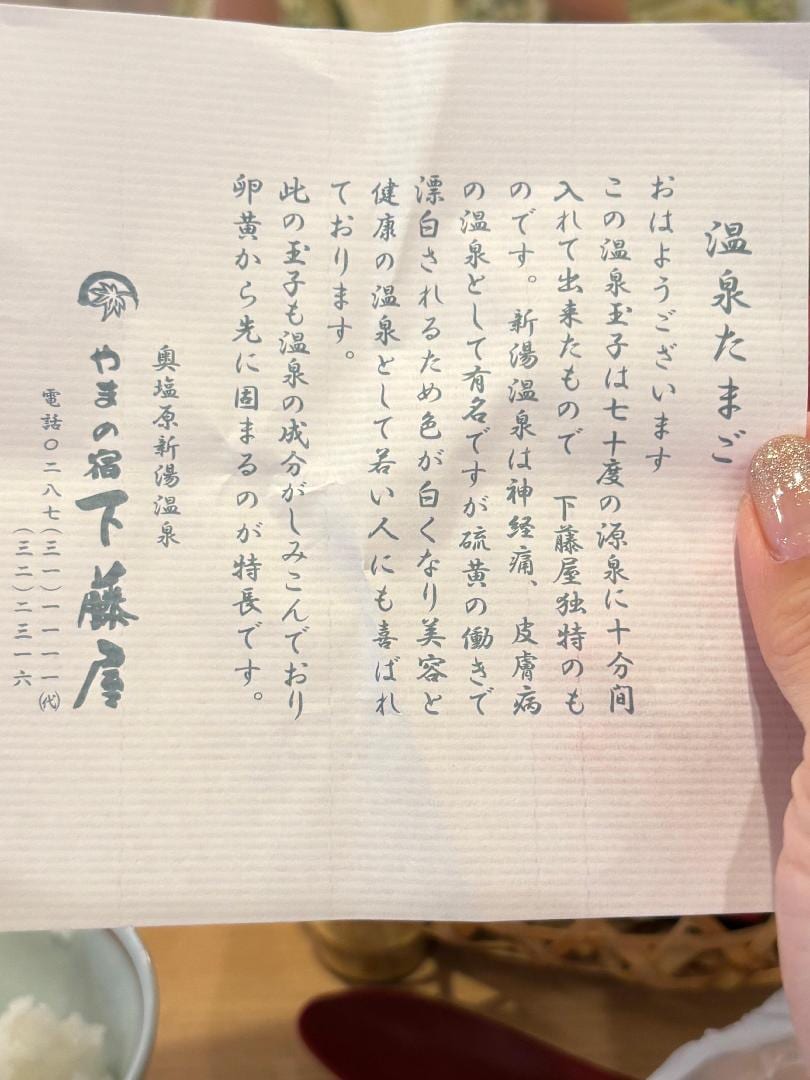 温泉たまご
おはようございます
この温泉玉子は七十度の源泉に十分間
入れて出来たもので 下藤屋独特のも
のです。 新湯温泉は神経痛、皮膚病
の温泉として有名ですが硫黄の働きで
漂白されるため色が白くなり美容と
健康の温泉として若い人にも喜ばれ
ております。
此の玉子も温泉の成分がしみこんでおり
卵黄から先に固まるのが特長です。
奥塩原新湯温泉
やまの宿 下藤屋
電話〇二八七(三一)一一一一(代)
(三二)二三一六